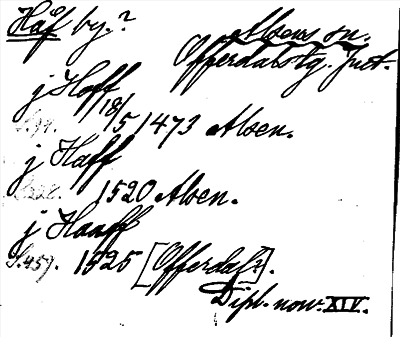 Håf by.?
Alsens sn.
Offerdals tg. Jmt.
j Hoff
S. 94. 18/5 1473 Alsen.
j Haff
1520 Alsen.
j Haaff
S. 457. 1525 [Offerdal].
Dipl. norv. XIV.